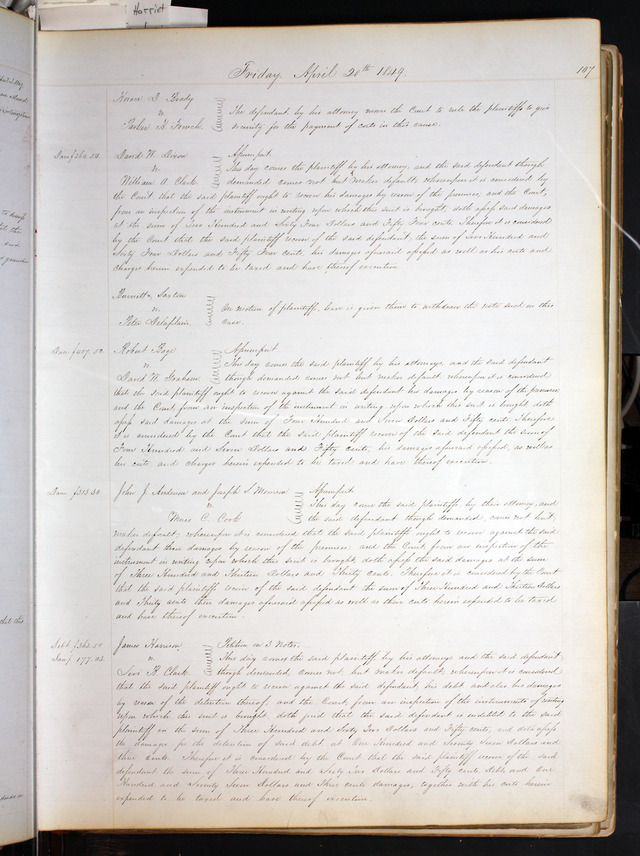 Harriet
Friday April 20th 1849.
107
The defendant by his attorney moves the Court to rule the plaintiffs to give
vs
security for the payment of costs in this cause.
Dam $264.54
David W. Dixon
Assumpsit
vs
This day comes the plaintiff by his attorney, and the said defendant though
William A. Clark
demanded comes not but makes default, wherefore it is considered by
the Court that the said plaintiff ought to recover his damages by reason of the premises, and the Court,
from an inspection of the instrument in writing upon which this suit is brought, doth assess said damages
at the sum of Two Hundred and Sixty Four Dollars and Fifty Four cents. Therefore it is considered
by the Court that the said plaintiff recover of the said defendant, the sum of Two Hundred and
Sixty Four Dollars and Fifty Four cents, his damages aforesaid assessed as well as his costs and
charges herein expended to be taxed and have thereof execution
vs
On motion of plaintiffs, leave is given them to withdraw the note sued on this
case.
Dam $407.50
Robert Page
Assumpsit
vs
This day comes the said plaintiff by his attorney, and the said defendant
David W. Graham
though demanded comes not but makes default, wherefore it is considered
that the said plaintiff ought to recover against the said defendant his damages by reason of the premises
and the Court from an inspection of the instrument in writing upon which this suit is brought doth
assess said damages at the sum of Four Hundred and Seven Dollars and Fifty cents. Therefore
it is considered by the Court that the said plaintiff recover of the said defendant the sum of
Four Hundred and Seven Dollars and Fifty cents, his damages aforesaid assessed, as well as
his costs and charges herein expended to be taxed and have thereof execution.
Dam $313.30
John J. Anderson and Joseph S.
Assumpsit
vs
This day come the said plaintiffs by their attorney, and
C. Cook
the said defendant though demanded, comes not but
makes default; wherefore it is considered that the said plaintiffs ought to recover against the said
defendant their damages by reason of the premises: and the Court from an inspection of the
instrument in writing upon which this suit is brought, doth assess the said damages at the sum
of Three Hundred and Thirteen Dollars and Thirty cents. Therefore it is considered by the Court
that the said plaintiffs recover of the said defendant the sum of Three hundred and Thirteen Dollars
and Thirty cents their damages aforesaid assessed as well as their costs herein expended to be taxed
and have thereof execution.
Debt $362.50
James Harrison
Petition on 2 Notes.
Dam $177.03
vs
This day comes the said plaintiff by his attorney and the said defendant
Clark
though demanded, comes not, but makes default, wherefore it is considered
that the said plaintiff ought to recover against the said defendant, his debt and also his damages
by reason of the detention thereof, and the Court from an inspection of the instruments of writing
upon which this suit is brought doth find that the said defendant is indebted to the said
plaintiff in the sum of Three Hundred and Sixty Two Dollars and Fifty cents, and doth assess
the damages for the detention of said debt at One Hundred and Seventy Seven Dollars and
three cents. Therefore it is considered by the Court that the said plaintiff recover of the said
defendant the sum of Three Hundred and Sixty Two Dollars and Fifty cents debt and One
Hundred and Seventy Seven Dollars and Three cents damages, together with his costs herein
expended to be taxed and have thereof execution.